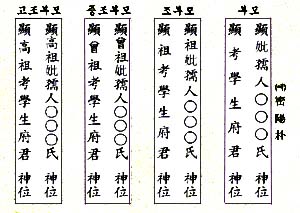 고조부모
顯高祖考學生府君 神位
顯高祖妣孺人○○○氏 神位
증조부모
顯曾祖考學生府君 神位
顯曾祖妣孺人○○○氏 神位
조부모
顯祖考學生府君 神位
顯祖妣孺人○○○氏 神位
부모
顯考學生府君 神位
顯妣孺人○○○氏 神位
密陽朴